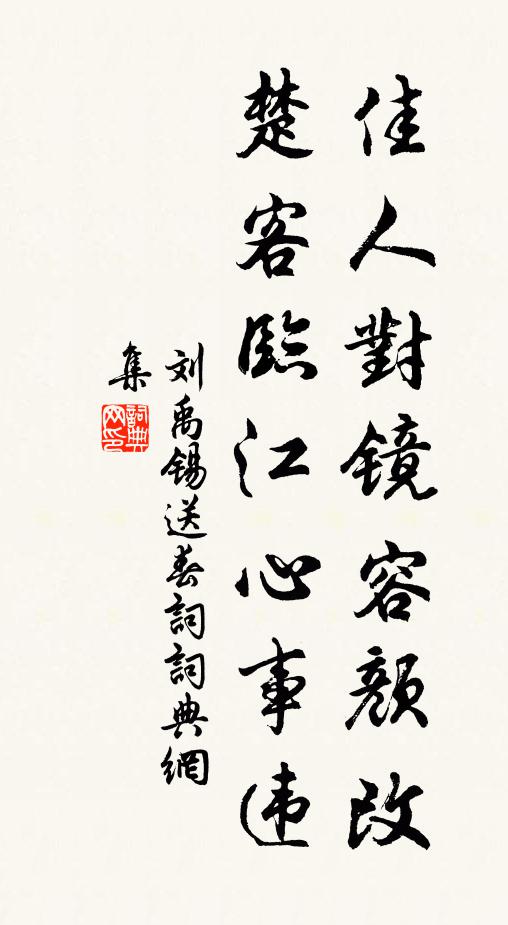 佳人對鏡容顔改
楚客臨江心事违
刘禹锡送春詞詞典網
集
詞典网印